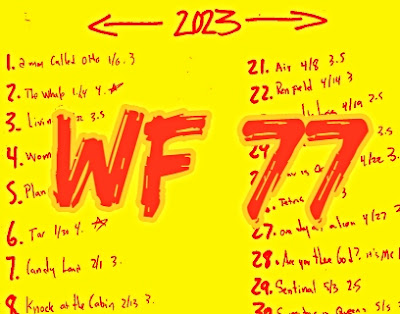 2023
1. a man called Otto 1/6. 3
2. The Whale 1/24 4.
3. Livin 3.5
4. Wom
5. Plan
6. Tar 1/30 4.
7. Candy Land 2/1 3.
8. Knock at the Cabin 2/13 3.
WF 77
21. Air 4/8 3.5
22. Renfield 4/14 3
4/19 2.5
24 3.5
4/22 3.
Tetris 3
27. one day at a time 4/27
28. Are you there God? it's Me
29. Sentinal 5/3 2.5
30 Queens 5/5